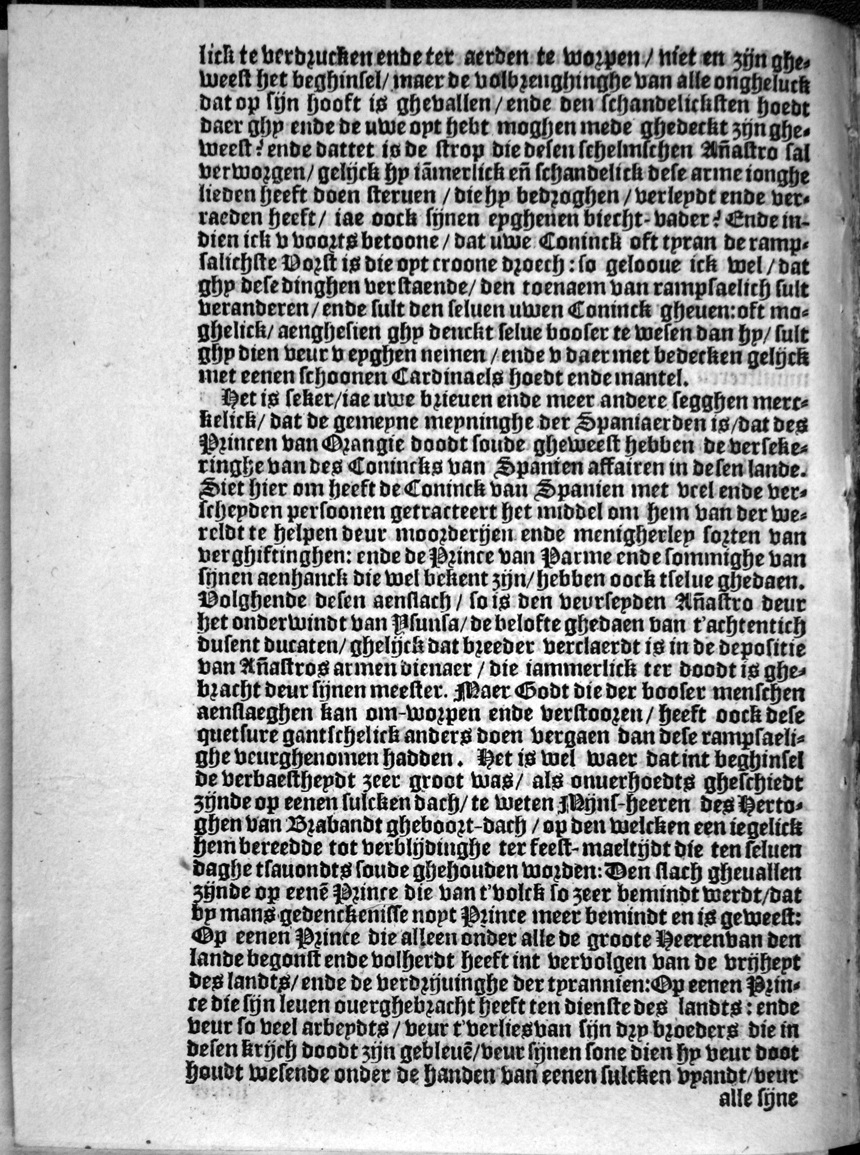 lick te verdrucken ende ter aerden te worpen / niet en zijn ghe-
weest het beghinsel / maer de volbrenghinghe van alle ongheluck
dat op sijn hooft is ghevallen / ende den schandelicksten hoedt
daer ghy ende de uwe oyt hebt moghen mede ghedeckt zijn ghe-
weest? ende dattet is de strop die desen schelmschen Añastro sal
verworgen / gelijck hy iãmerlick eñ schandelick dese arme ionghe
lieden heeft doen steruen / die hy bedroghen / verleydt ende ver-
raeden heeft / iae oock sijnen eyghenen biecht-vader? Ende in-
dien ick v voorts betoone / dat uwe Coninck oft tyran de ramp-
salichste Vorst is die oyt croone droech : so gelooue ick wel / dat
ghy dese dinghen verstaende / den toenaem van rampsaelich sult
veranderen / ende sult den seluen uwen Coninck gheuen: oft mo-
ghelick / aenghesien ghy denckt selue booser te wesen dan hy / sult
ghy dien veur v eyghen nemen / ende v daer met bedecken gelijck
met eenen schoonen Cardinaels hoedt ende mantel.
Het is seker / iae uwe brieuen ende meer andere segghen merc-
kelick / dat de gemeyne meyninghe der Spaniaerden is / dat des
Princen van Orangie doodt soude gheweest hebben de verseke-
ringhe van des Conincks van Spanien affairen in desen lande.
Siet hier om heeft de Coninck van Spanien met veel ende ver-
scheyden persoonen getracteert het middel om hem van der we-
reldt te helpen deur moorderijen ende menigherley sorten van
verghiftinghen: ende de Prince van Parme ende sommighe van
sijnen aenhanck die wel bekent zijn / hebben oock tselue ghedaen.
Volghende desen aenslach / so is den veurseyden Añastro deur
het onderwindt van Ysunsa / de belofte ghedaen van t'achtentich
dusent ducaten / ghelijck dat breeder verclaerdt is in de depositie
van Añastros armen dienaer / die iammerlick ter doodt is ghe-
bracht deur sijnen meester. Maer Godt die der booser menschen
aenslaeghen kan om-worpen ende verstooren / heeft oock dese
quetsure gantschelick anders doen vergaen dan dese rampsaeli-
ghe veurghenomen hadden. Het is wel waer dat int beghinsel
de verbaestheydt zeer groot was / als onuerhoedts gheschiedt
zijnde op eenen sulcken dach / te weten Mijns-heeren des Herto-
ghen van Brabandt gheboort-dach / op den welcken een iegelick
hem bereedde tot verblijdinghe ter feest-maeltijdt die ten seluen
daghe tsauondts soude ghehouden worden: Den slach gheuallen
zijnde op eenẽ Prince die van t'volck so zeer bemindt werdt / dat
by mans gedenckenisse noyt Prince meer bemindt en is geweest:
Op eenen Prince die alleen onder alle de groote Heeren van den
lande begonst ende volherdt heeft int vervolgen van de vrijheyt
des landts / ende de verdrijuinghe der tyrannien: Op eenen Prin-
ce die sijn leuen ouerghebracht heeft ten dienste des landts : ende
veur so veel arbeydts / veur t'verlies van sijn dry broeders die in
desen krijch doodt zijn gebleuẽ / veur sijnen sone dien hy veur doot
houdt wesende onder de handen van eenen sulcken vyandt / veur
alle sijne